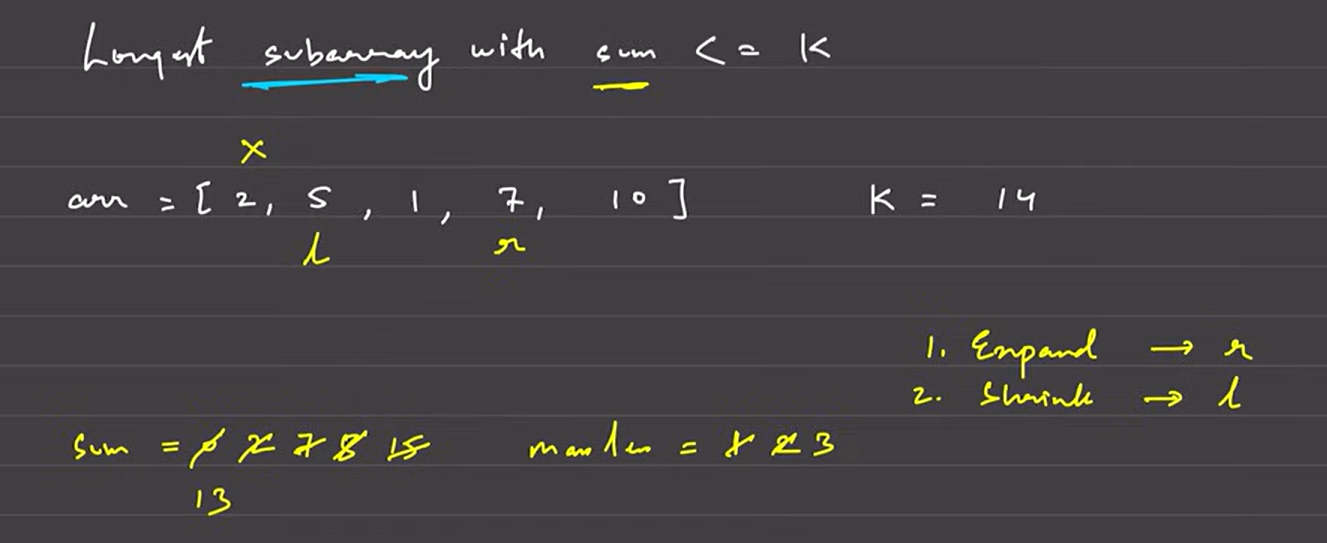 Longest subarray with sum <= K
x
arr = [ 2, 5, 1, 7, 10 ] K = 14
l r
1. Expand → r
2. Shrink → l
sum = 0 2 7 8 15 maxlen = 1 2 3
13